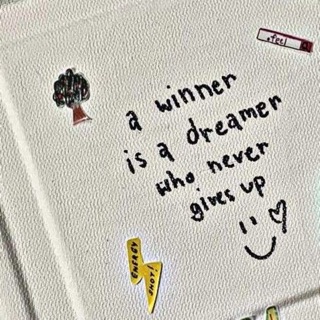 .feel
a winner
is a dreamer
who never
gives up
ENERGY
SHOT!